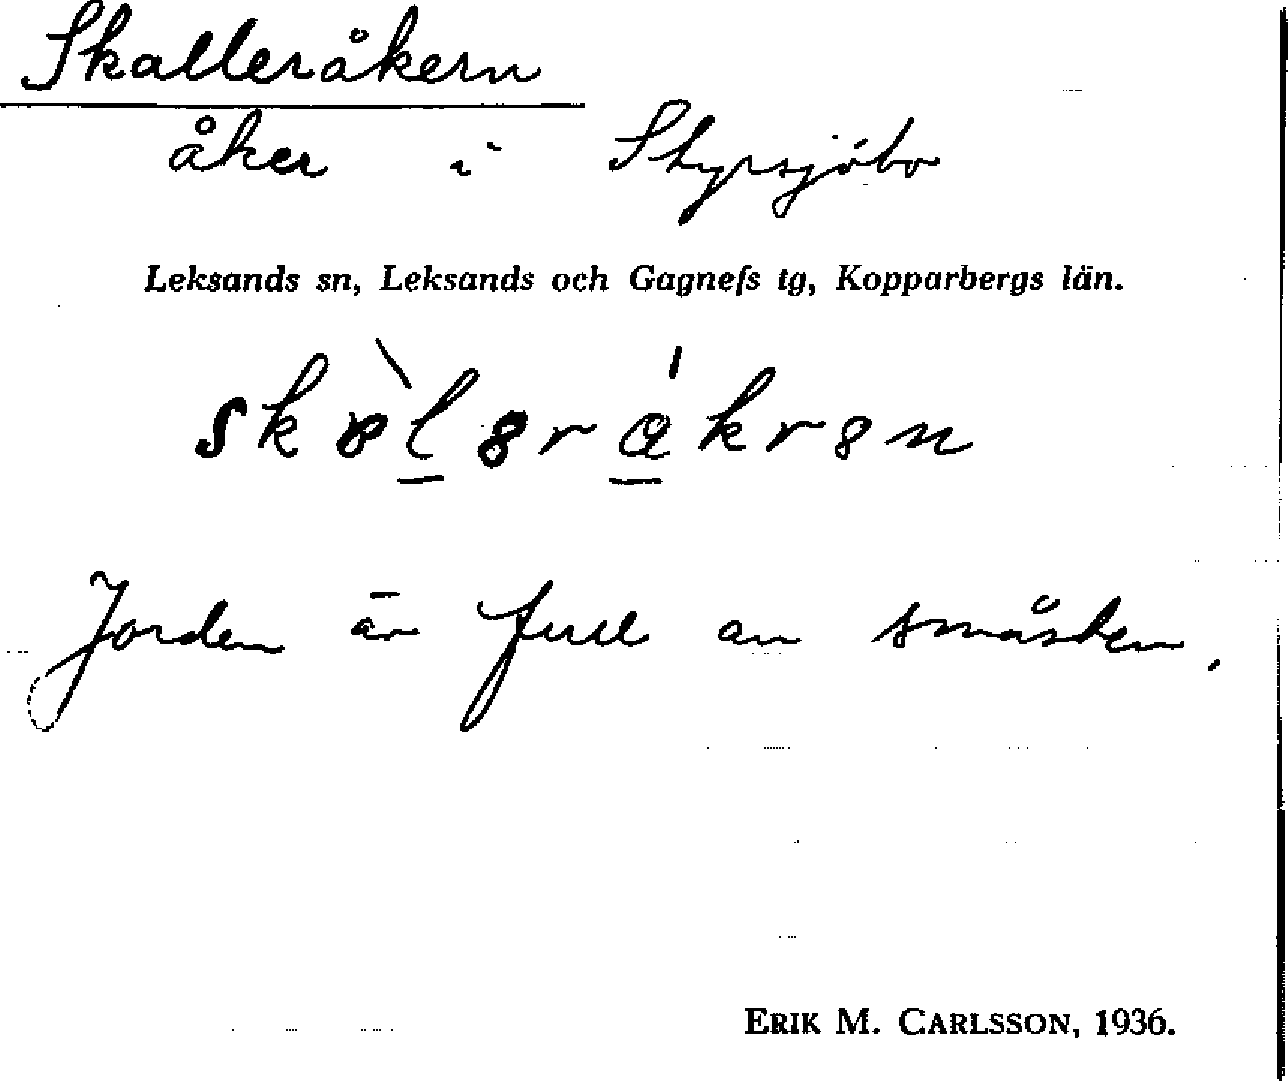 Skalleråkern
åker i Styrsjöbo
Leksands sn, Leksands och Gagnefs tg, Kopparbergs län.
Jorden är full av småsten.
ERIK M. CARLSSON, 1936.